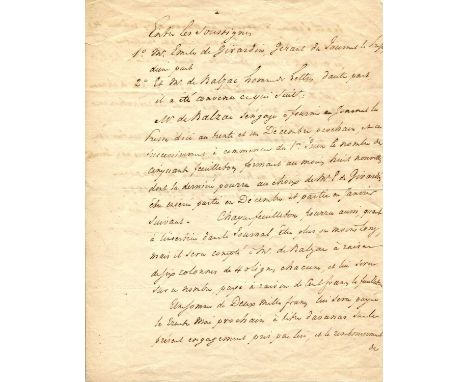 Entre les Soussignés
1° Mr. Emile de Girardin Gérant du Journal la Presse
d'une part
2° Et Mr. de Balzac homme de Lettres d'autre part
il a été convenu ce qui suit:
Mr. de Balzac s'engage à fournir au Journal la
Presse d'ici au trente et un Décembre prochain et
successivement à commencer du 1er Juin le nombre de
cinquante feuilletons formant au moins huit nouvelles
dont la dernière pourra au choix de Mr. E. de Girardin
être insérée partie en Décembre et partie en Janvier
suivant. Chaque feuilleton pourra aussi quant
à l'insertion dans le Journal être plus ou moins long,
mais il sera compté à Mr. de Balzac à raison
de six colonnes de 40 lignes chacune et lui sera
sur ce nombre payé à raison de Cent francs le feuilleton
Une somme de Deux mille francs lui sera payée
le trente Mai prochain à titre d'avances sur le
présent engagement pris par lui et le remboursement
de